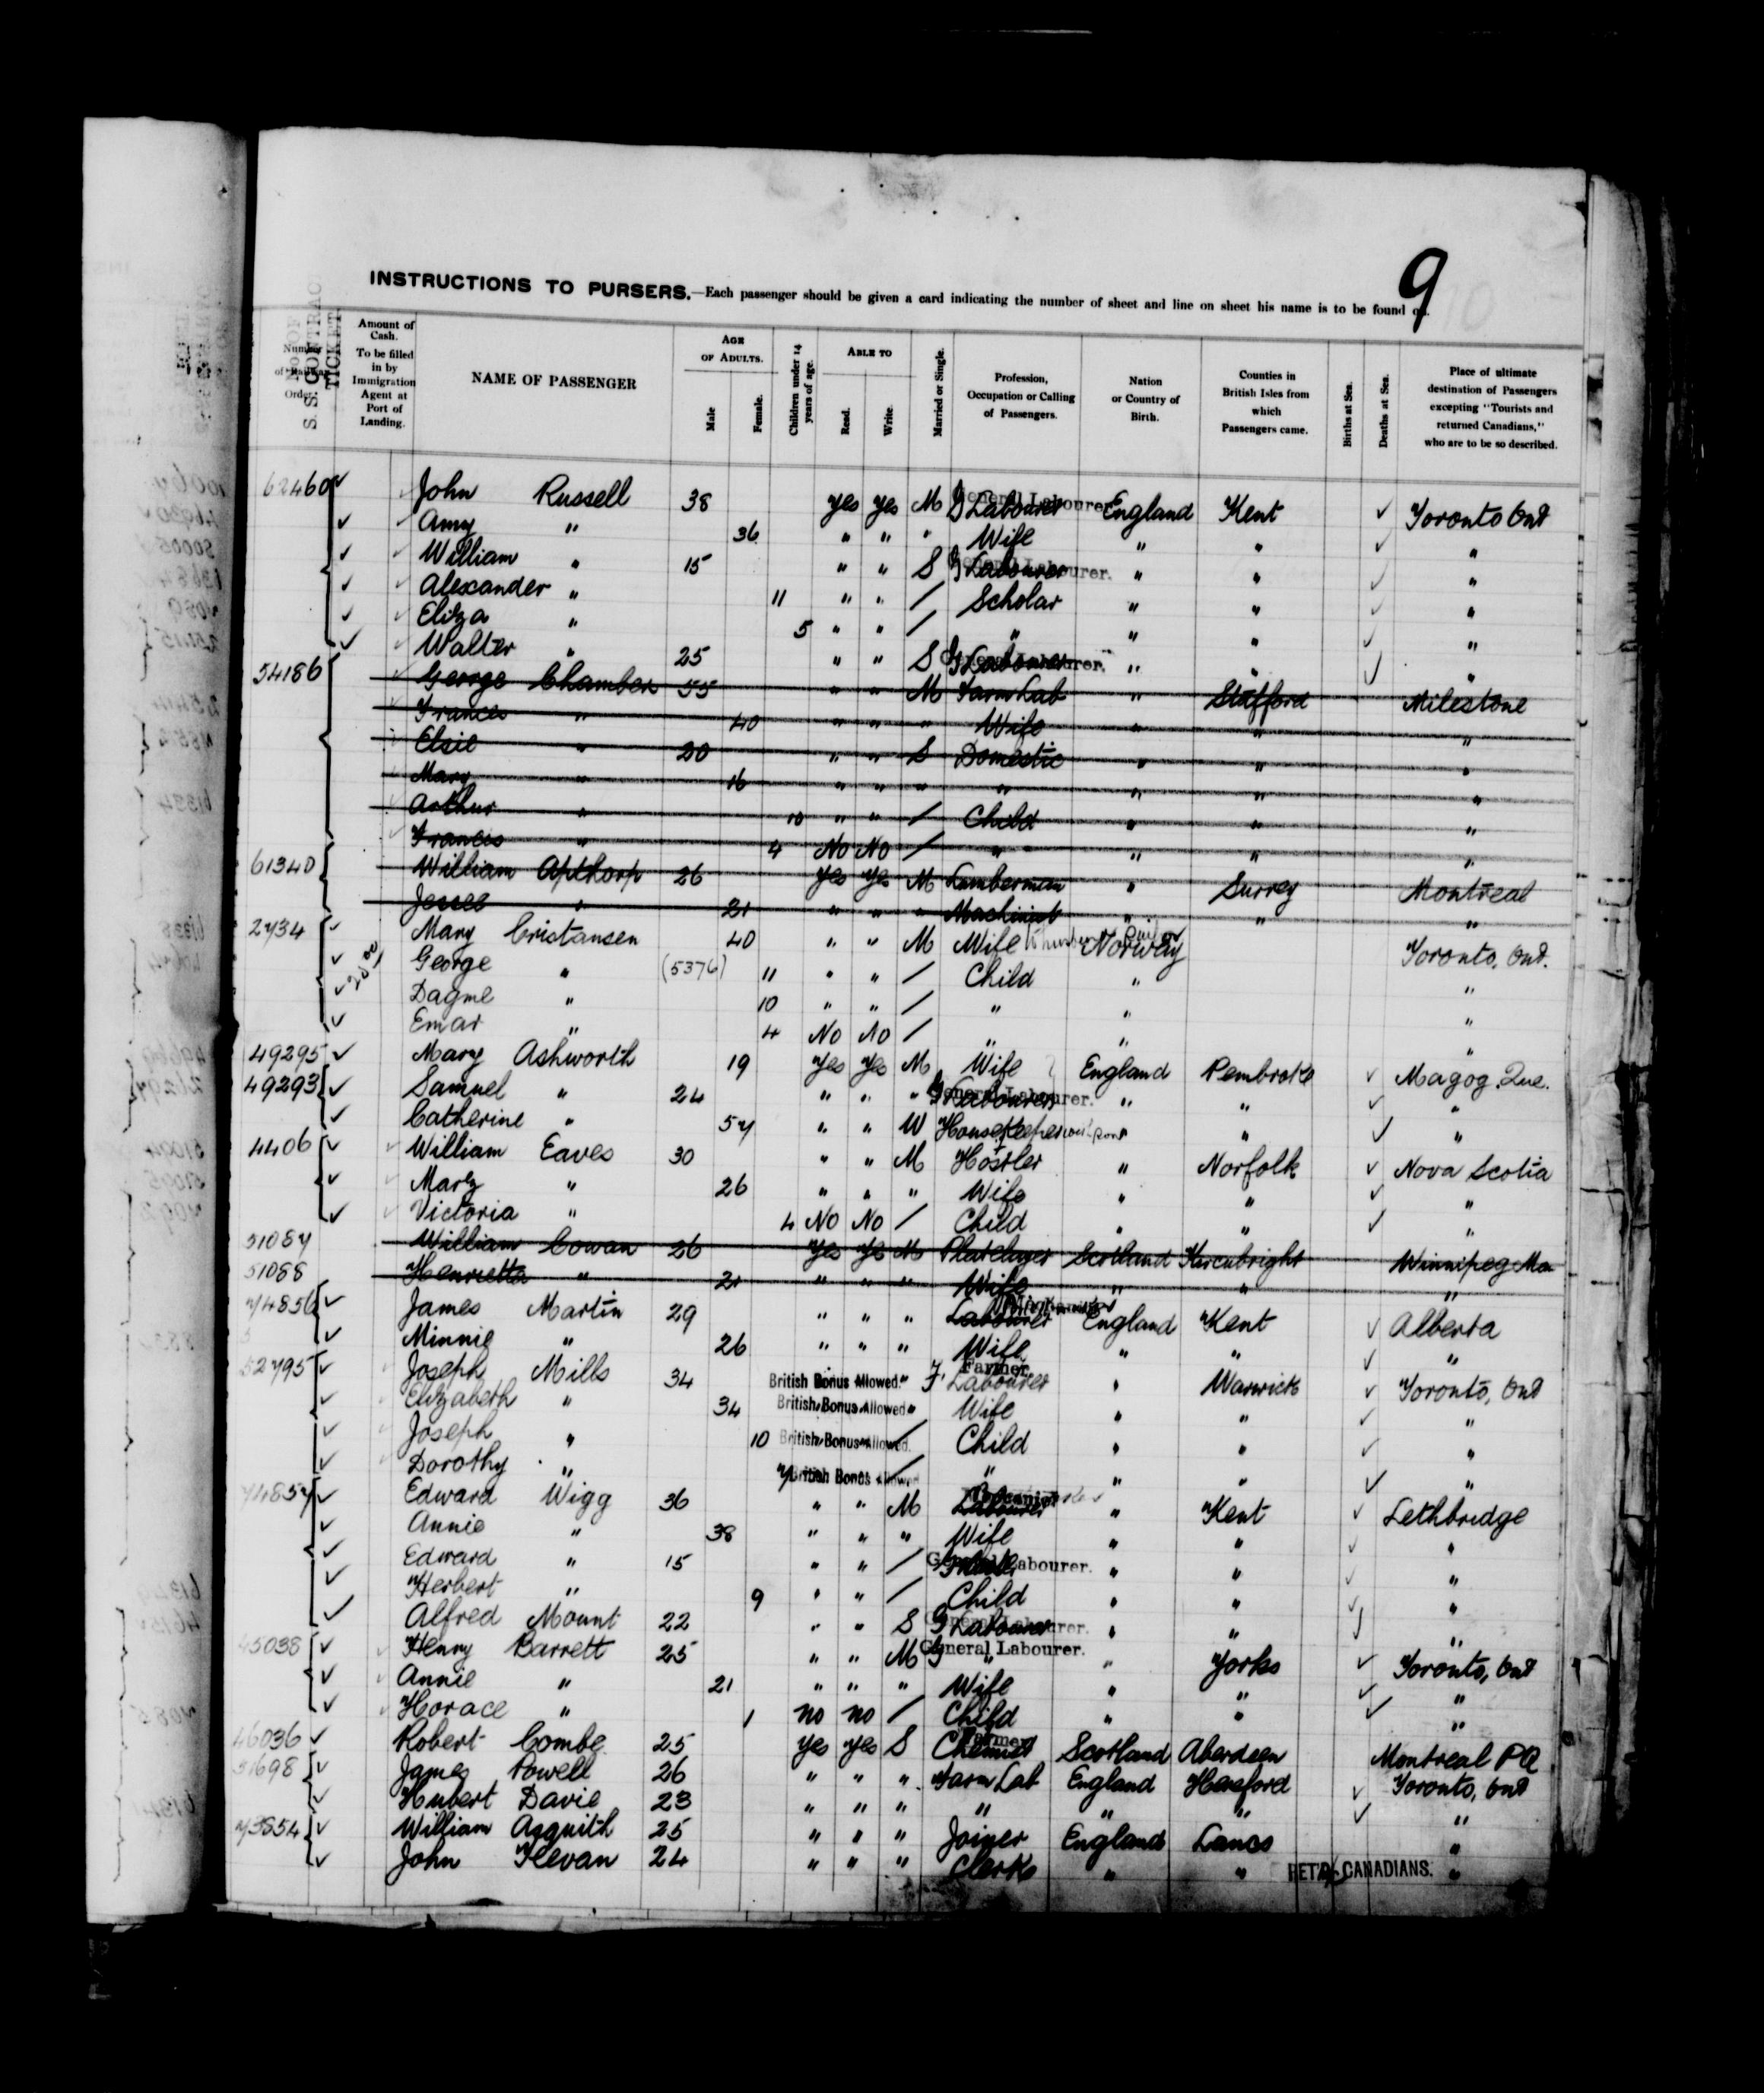 9
INSTRUCTIONS TO PURSERS.—Each passenger should be given a card indicating the number of sheet and line on sheet his name is to be found on.
Number of Railway Order. No. OF S. S. CONTRACT TICKET Amount of Cash. To be filled in by Immigration Agent at Port of Landing. NAME OF PASSENGER AGE OF ADULTS. Male Female. Children under 14 years of age. ABLE TO Read. Write. Married or Single. Profession, Occupation or Calling of Passengers. Nation or Country of Birth. Counties in British Isles from which Passengers came. Births at Sea. Deaths at Sea. Place of ultimate destination of Passengers excepting "Tourists and returned Canadians," who are to be so described.
62460 John Russell 38 yes yes M G Labourer General Labourer England Kent Toronto Ont
Amy " 36 " " " Wife " " "
William " 15 " " S G Labourer General Labourer. " " "
Alexander " 11 " " / Scholar " " "
Eliza " 5 " " / " " " "
Walter " 25 " " S G Labourer General Labourer. " " "
54186 George Chamber 55 " " M Farm Lab " Stafford Milestone
Frances " 40 " " " Wife " " "
Elsie " 20 " " S Domestic " " "
Mary " 16 " " " " " " "
Arthur " 10 " " / Child " " "
Francis " 4 No No / " " " "
61340 William Apthorp 26 yes yes M Lumberman " Surrey Montreal
Jesses " 21 " " " Machinist " " "
2734 Mary Cristansen 40 " " M Wife Norway Toronto, Ont.
George " (5376) 11 " " / Child " "
Dagme " 10 " " / " " "
Emar " 4 No No / " " "
49295 Mary Ashworth 19 yes yes M Wife England Pembroke Magog Que.
49293 Samuel " 24 " " " G Labourer General Labourer. " " "
Catherine " 57 " " W Housekeeper " " "
4406 William Eaves 30 " " M Hostler " Norfolk Nova Scotia
Mary " 26 " " " Wife " " "
Victoria " 4 No No / Child " " "
51087 William Cowan 26 yes yes M Platelayer Scotland Kircubright Winnipeg Man
51088 Henrietta " 21 " " " Wife " " "
74856 James Martin 29 " " " Labourer England Kent Alberta
Minnie " 26 " " " Wife " " "
52795 Joseph Mills 34 British Bonus Allowed. " F. Labourer Farmer. " Warwick Toronto, Ont
Elizabeth " 34 British Bonus Allowed " Wife " " "
Joseph " 10 British Bonus Allowed. / Child " " "
Dorothy " 7 British Bonus Allowed / " " " "
74857 Edward Wigg 36 " " M Labourer Mechanic " Kent Lethbridge
Annie " 38 " " " Wife " " "
Edward " 15 " " / General Labourer. " " "
Herbert " 9 " " / Child " " "
Alfred Mount 22 " " S G Labourer General Labourer. " " "
45038 Henry Barrett 25 " " M G " General Labourer. " Yorks Toronto, Ont
Annie " 21 " " " Wife " " "
Horace " 1 no no / Child " " "
46036 Robert Combe 25 yes yes S Chemist Farmer Scotland Aberdeen Montreal PQ
51698 James Powell 26 " " " Farm Lab England Hereford Toronto, Ont
Hubert Davie 23 " " " " " " "
73854 William Asquith 25 " " " Joiner England Lancs "
John Kevan 24 " " " Clerk " " RET'D CANADIANS. "